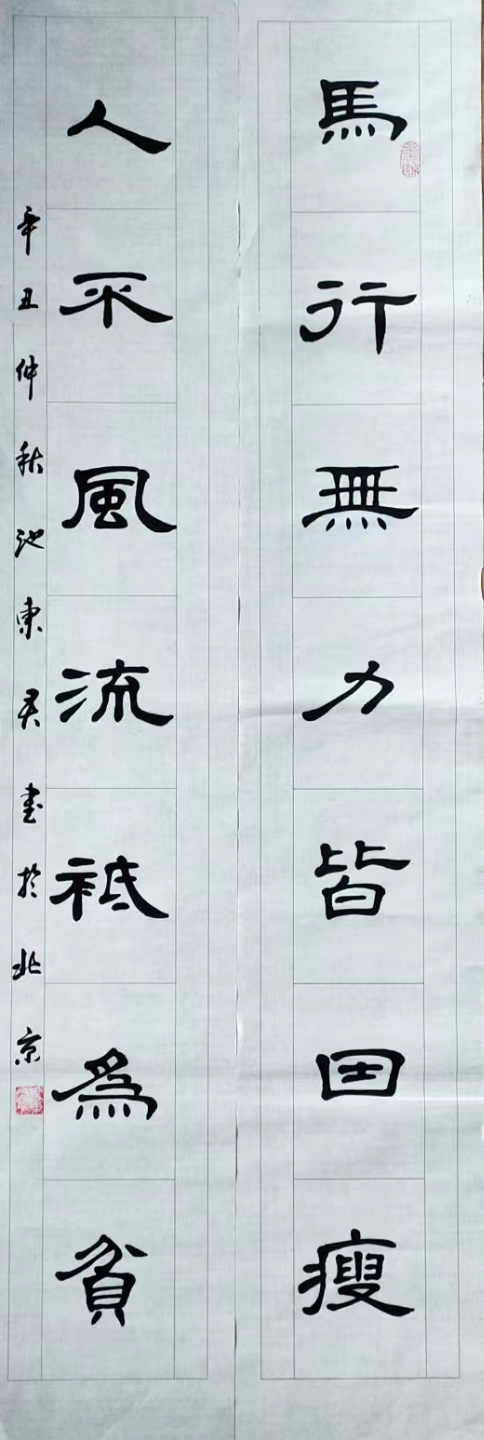 馬行無力皆因瘦
人不風流祗為貧
辛丑仲秋池東君書於北京